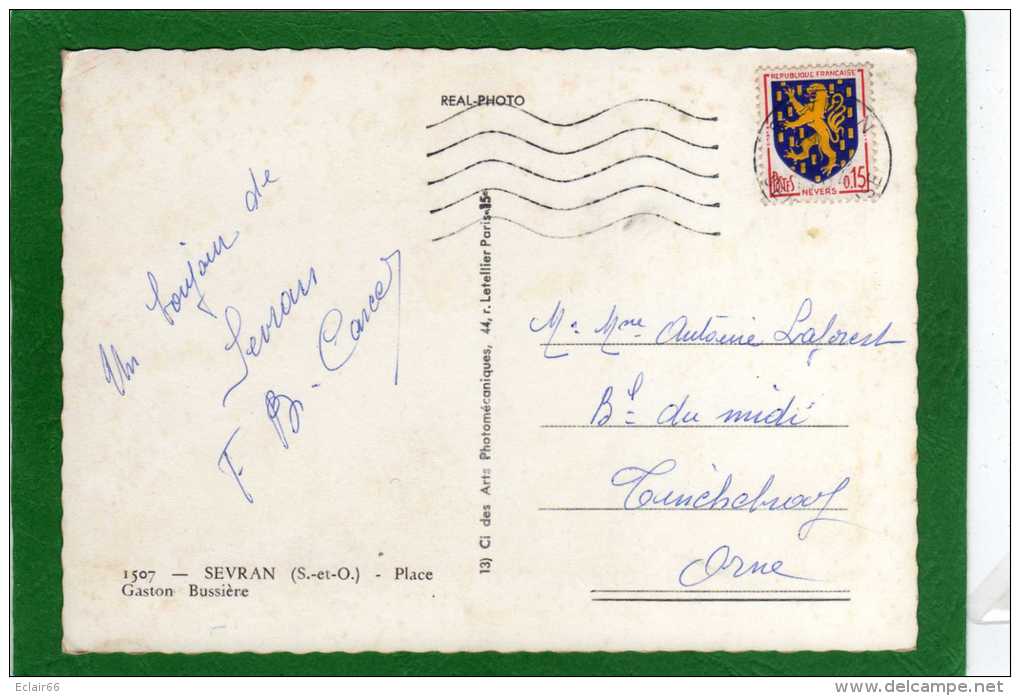 REAL-PHOTO
REPUBLIQUE FRANCAISE
POSTES
0.15
NEVERS
Un bonjour de
Sevran
F. B. Carcel
13) Ci des Arts Photomécaniques, 44, r. Letellier Paris-15e
Mr Mme Antoine Laforest
Bd du midi
Tinchebray
Orne
1507 — SEVRAN (S.-et-O.) - Place
Gaston Bussière
Eclair66
www.delcampe.net